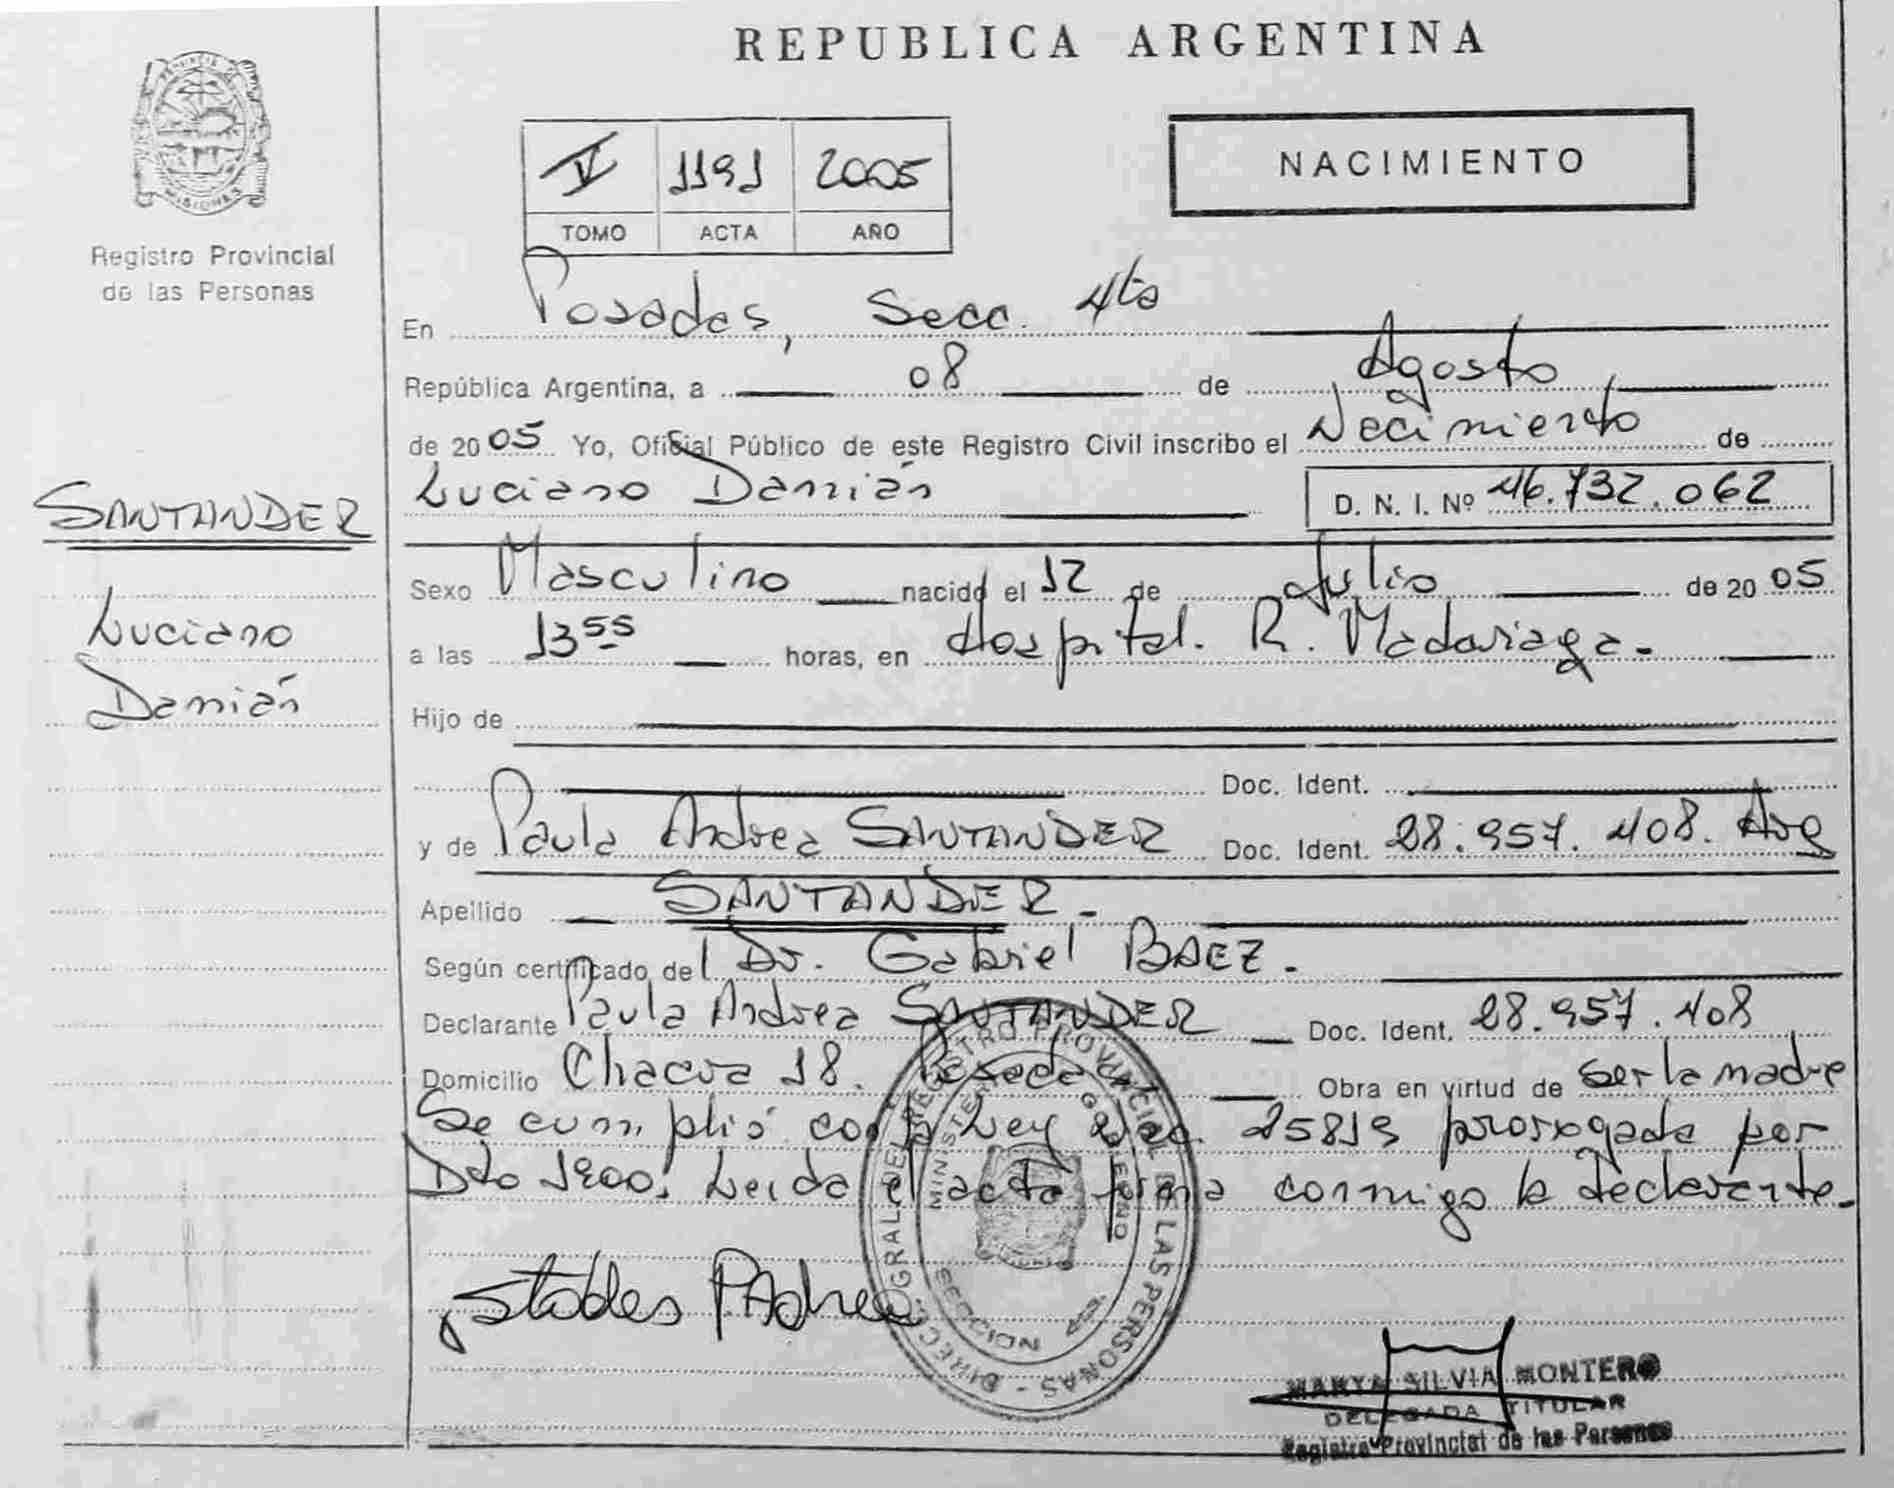 REPUBLICA ARGENTINA
PROVINCIA DE
MISIONES
Registro Provincial
de las Personas
V 1191 2005
TOMO ACTA AÑO
NACIMIENTO
En Posadas, Secc. 4ta
República Argentina, a 08 de Agosto
de 2005 Yo, Oficial Público de este Registro Civil inscribo el Nacimiento de
Luciano Damián D. N. I. Nº 46.732.062
SANTANDER
Luciano
Damián
Sexo Masculino nacido el 12 de Julio de 2005
a las 13 55 horas, en Hospital. R. Madariaga.
Hijo de
Doc. Ident.
y de Paula Andrea SANTANDER Doc. Ident. 28.957.408. Arg
Apellido SANTANDER.
Según certificado del Dr. Gabriel BAEZ.
Declarante Paula Andrea SANTANDER Doc. Ident. 28.957.408
Domicilio Chacra 18. Posadas Obra en virtud de ser la madre
Se cumplió con Ley 25819 prorrogada por
Dto 1900. Leida el acta firma conmigo la declarante.
PAdrea
DIRECC. GRAL. DEL REGISTRO PROVINCIAL DE LAS PERSONAS
MINISTERIO GOBIERNO
SECCION 4ta
MARYA SILVIA MONTERO
DELEGADA TITULAR
Registro Provincial de las Personas